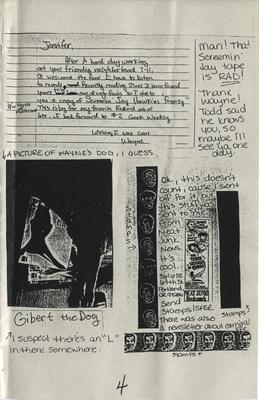 Jennifer,
After A hard day working
at you friendly neighborhood 7-11,
It welcome the
to reads, Recently reading Zines I have found
yours one of my favs. So I give to
you a copy of Screamin Jay Hawkins Frenzy
This copy by my favorite Record as of
late. I look forward to #2. Geek Weekly
Wishing I was Cool
Wayne
Man! That
Screamin'
Jay tape
is RAD!
Thank
Wayne!
Todd said
he knows
you, so
maybe I'll
see ya one
day.
A PICTURE OF WAYNE'S DOG, I GUESS.
Gibert the Dog
I suspect there's an "L"
in there somewhere.
STAMPS
Ok, this doesn't
count, cause I sent
off for it, but
this stuff was
sent to me
from
Meat
Junk
News.
It's
cool.
Portland
OR
Send
Stamps!
There was also
a newsletter about carnival
Stamps↑
Stamps↑
4